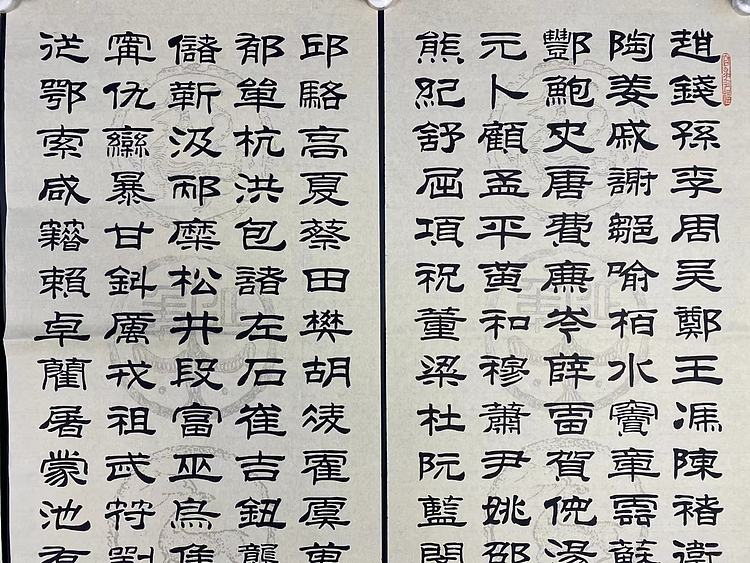 趙錢孫李周吳鄭王馮陳褚衛
陶姜戚謝鄒喻柏水竇章雲蘇
酆鮑史唐費廉岑薛雷賀倪湯
元卜顧孟平黃和穆蕭尹姚邵
熊紀舒屈項祝董梁杜阮藍閔
邱駱高夏蔡田樊胡凌霍虞萬
郁單杭洪包諸左石崔吉鈕龔
儲靳汲邴糜松井段富巫烏焦
甯仇欒暴甘鈄厲戎祖武符劉
從鄂索咸籍賴卓藺屠蒙池